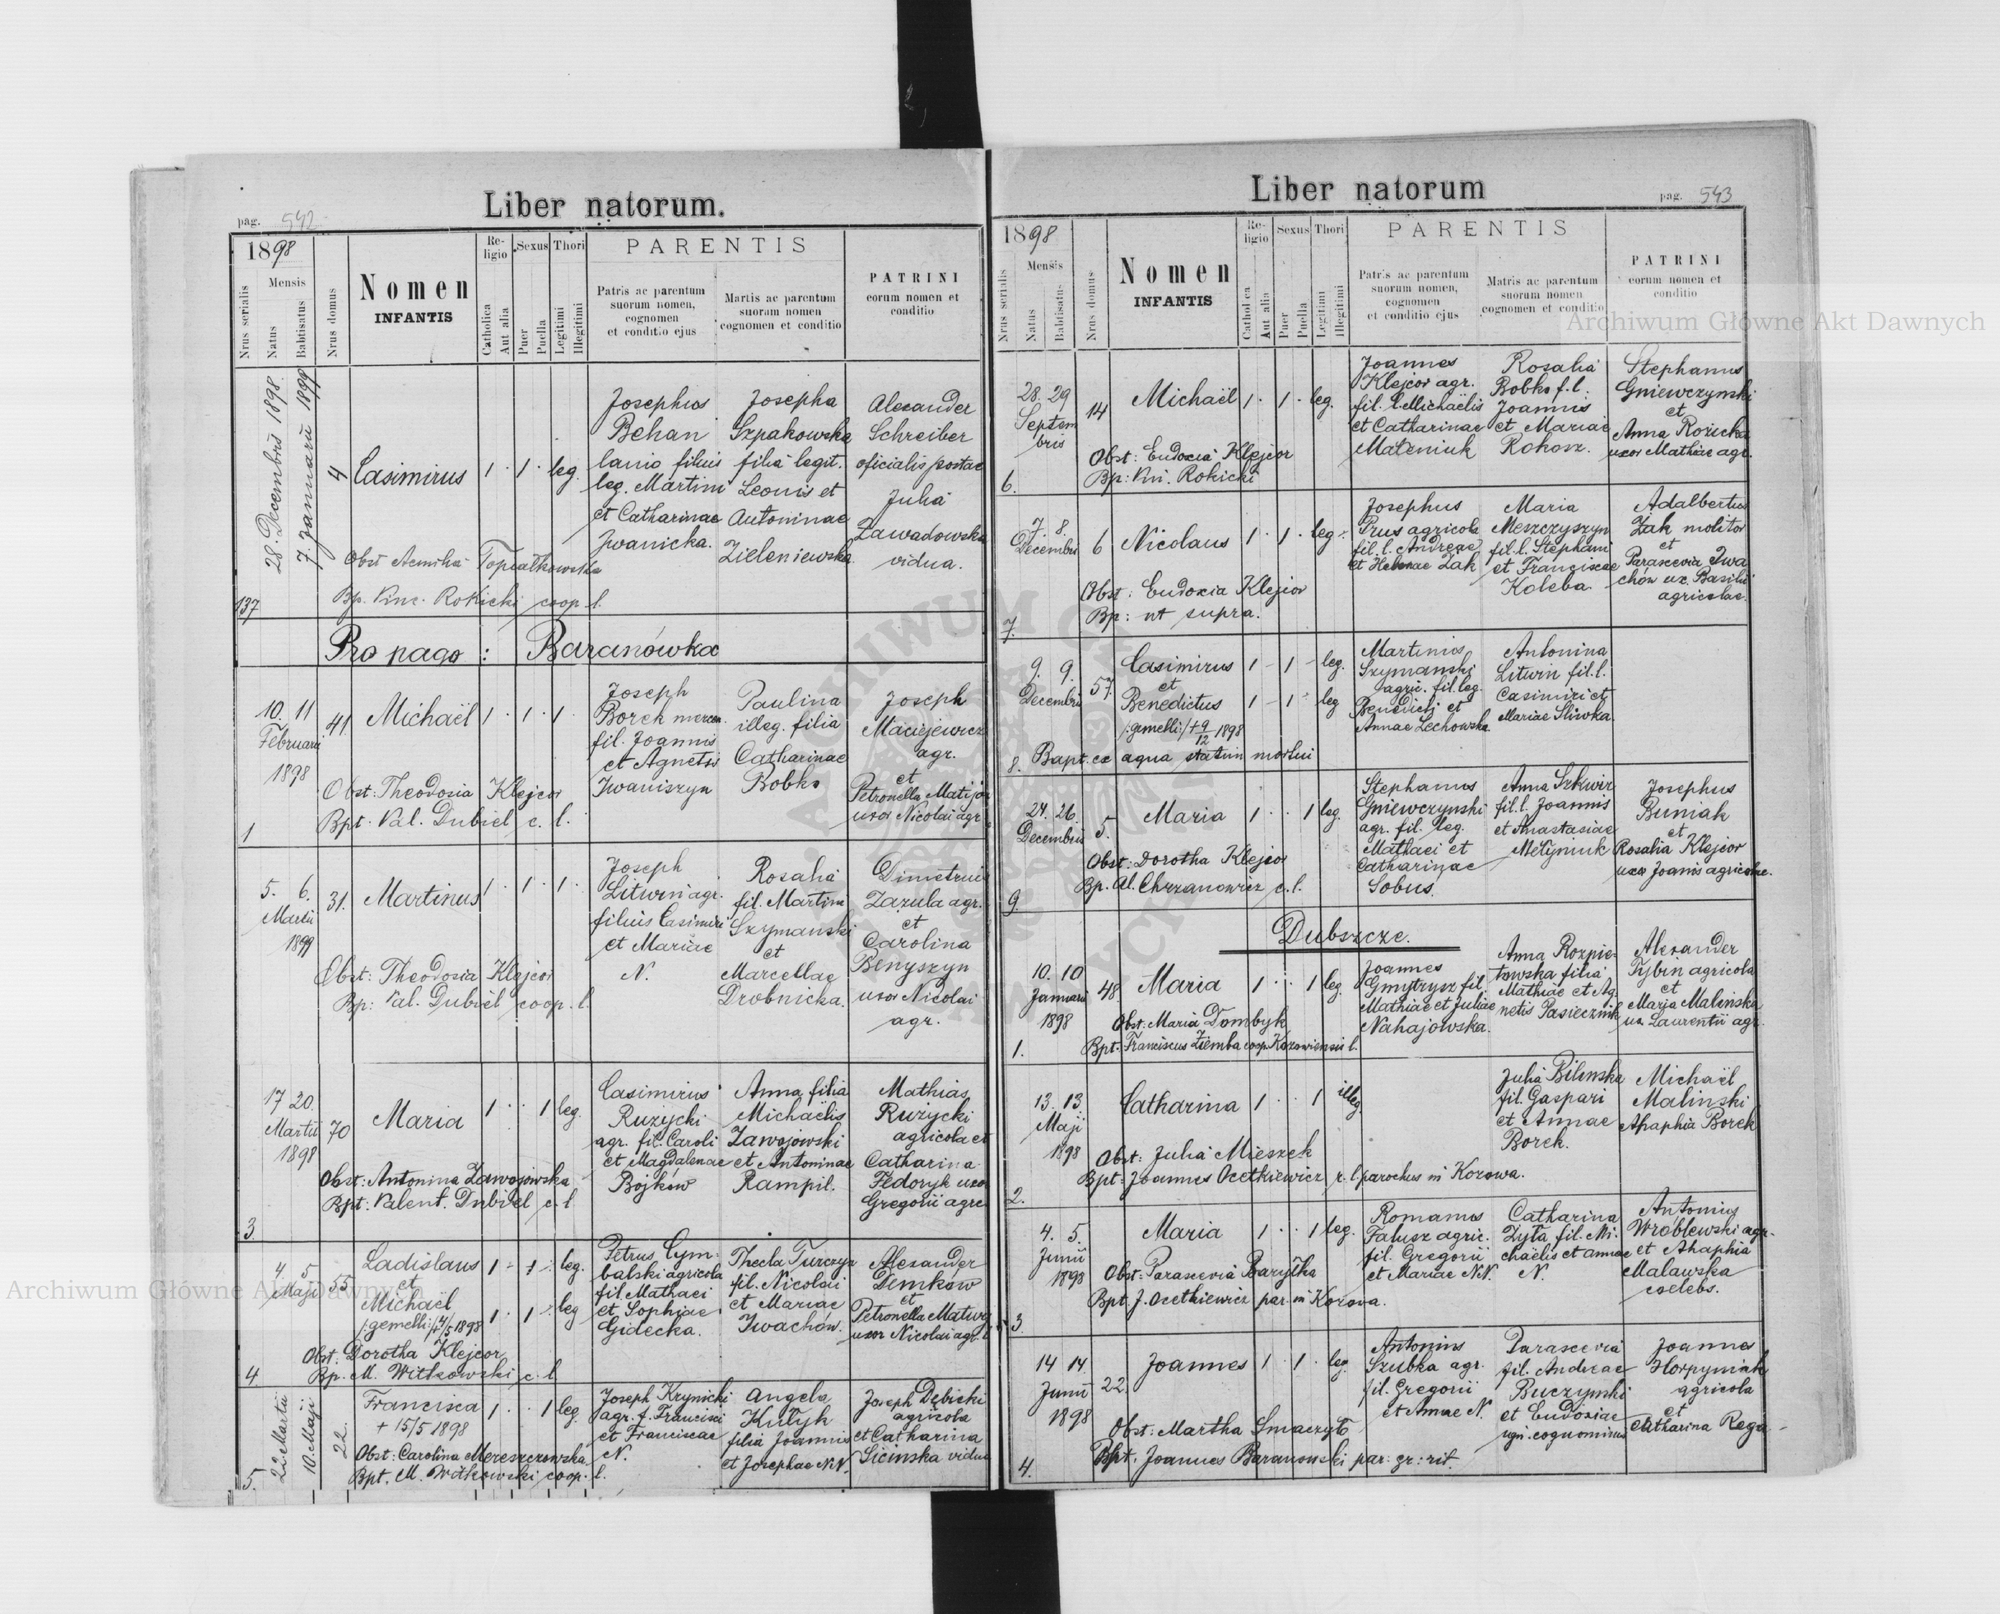 Liber natorum.
pag. 542
1898
Nrus serialis
Mensis
Natus
Babtisatus
Nrus domus
Nomen
INFANTIS
Religio
Catholica
Aut alia
Sexus
Puer
Puella
Thori
Legitimi
Illegitimi
PARENTIS
Patris ac parentum
suorum nomen,
cognomen
et conditio ejus
Martis ac parentum
suoram nomen
cognomen et conditio
PATRINI
eorum nomen et
conditio
137
28. Decembris 1898.
7. Januarii 1899
4
Casimirus
1 . 1 . leg.
Josephus
Behan
lanio filius
leg. Martini
et Catharinae
Iwanicka.
Josepha
Szpakowska
filia legit.
Leonis et
Antoninae
Zieleniewska
Alexander
Schreiber
oficialis postae
Julia
Zawadowska
vidua.
Obst
Bp. Vinc. Rokicki coop. l.
Pro pago : Baranówka
1
10. 11
Februarii
1898
41
Michaël
1 . 1 . 1 .
Joseph
Borek mercen.
fil. Joannis
et Agnetis
Iwaniszyn
Paulina
illeg. filia
Catharinae
Bobko
Joseph
Maciejewicz
agr.
et
Petronella
uxor Nicolai agr.
Obst: Theodosia Klejcor
Bpt. Val. Dubiel c. l.
5. 6.
Martii
1899
31.
Martinus
1 . 1 . 1 .
Joseph
Litwin agr.
filius Casimiri
et Mariae
N.
Rosalia
fil. Martini
Szymanski
et
Marcellae
Drobnicka.
Dimetrius
Zazula agr.
et
Carolina
Benyszyn
uxor Nicolai
agr.
Obst: Theodosia Klejcor
Bp: Val. Dubiel coop. l.
3
17 20.
Martii
1898
70
Maria
1 . . 1 leg.
Casimirus
Ruzycki
agr. fil. Caroli
et Magdalenae
Bojkow
Anna filia
Michaëlis
Zawojowski
et Antoninae
Rampil.
Mathias
Ruzycki
agricola et
Catharina
Fedoryk uxor
Gregorii agr.
Obst: Antonina Zawojowska
Bpt: Valent. Dubiel c. l
4
4 5
Maji
55
Ladislaus
et
Michaël
/:gemelli:/ + 4/5 1898
1 - 1 - leg.
1 . 1 . leg
Petrus Cym-
balski agricola
fil Mathaei
et Sophiae
Gidecka.
Thecla Turczyn
fil. Nicolai
et Mariae
Iwachów.
Alexander
Dimkow
et
Petronella
uxor Nicolai agr.
Obst: Dorotha Klejcor
Bp. M. Witkowski c. l
5.
22 Martii
10. Maji
22.
Francisca
+ 15/5 1898
1 . . 1 leg.
Joseph Krynicki
agr. f. Francisci
et Franciscae
N.
Angela
Kutyk
filia Joannis
et Josephae N.N.
Joseph Dębicki
agricola
et Catharina
Sicinska vidua
Obst: Carolina Mereszczowska
Bpt. M. Witkowski coop. l.
Liber natorum
pag. 543
1898
Nrus serialis
Mensis
Natus
Babtisatus
Nrus domus
Nomen
INFANTIS
Religio
Catholica
Aut alia
Sexus
Puer
Puella
Thori
Legitimi
Illegitimi
PARENTIS
Patris ac parentum
suorum nomen,
cognomen
et conditio ejus
Matris ac parentum
suorum nomen
cognomen et conditio
PATRINI
eorum nomen et
conditio
6.
28. 29
Septem
bris
14
Michaël
1 . 1 . leg.
Joannes
Klejcor agr.
fil. l. Michaëlis
et Catharinae
Maleniuk
Rosalia
Bobko f. l.
Joannis
et Mariae
Rokosz.
Stephanus
Gniewczynski
et
Anna Rozicka
uxor Mathiae agr.
Obst: Eudoxia Klejcor
Bp: Vin. Rokicki
7.
7. 8.
Decembris
6
Nicolaus
1 . 1 . leg.
Josephus
Prus agricola
fil. l. Andreae
et Helenae Zak
Maria
Meszczyszyn
fil. l. Stephani
et Franciscae
Koleba
Adalbertus
Zak molitor
et
Parascevia Iwa
chów ux. Basilii
agricolae.
Obst: Eudoxia Klejcor
Bp: ut supra.
8.
9. 9.
Decembris
57.
Casimirus
et
Benedictus
/:gemelli:/ + 9/12 1898
1 - 1 - leg.
1 - 1 - leg
Martinus
Szymanski
agric. fil. leg.
Benedicti et
Annae Lechowska
Antonina
Litwin fil. l.
Casimiri et
Mariae Sliwka.
Bapt. ex aqua statim mortui
9.
24. 26.
Decembris
5.
Maria
1 . . 1 leg.
Stephanus
Gniewczynski
agr. fil. leg.
Mathaei et
Catharinae
Sobus.
Anna Szkwir
fil. l. Joannis
et Anastasiae
Josephus
Buniak
et
Rosalia Klejcor
uxor Joanis agricolae.
Obst: Dorotha Klejcor
Bp. Al. Chrzanowicz c. l.
Dubszcze.
1.
10. 10
Januarii
1898
48
Maria
1 . . 1 leg.
Joannes
Gmytrysz fil.
Mathiae et Juliae
Nahajowska.
Anna Rozpie-
towska filia
Mathiae et Ag
netis Pasiecznik
Alexander
Tybin agricola
et
Maria Malinska
ux. Laurentii agr.
Obst: Maria Dombyk
Bpt. Franciscus Ziemba coop. Kozowiensis l.
2.
13. 13.
Maji
1898
Catharina
1 . . 1 illeg.
Julia Bilinska
fil. Gaspari
et Annae
Borek.
Michaël
Malinski
Ahaphia Borek
Obst: Julia Mieszek
Bpt: Joannes Ocetkiewicz r. l parochus in Kozowa.
3
4. 5.
Junii
1898
Maria
1 . . 1 leg.
Romanus
Falusz agric.
fil. Gregorii
et Mariae N.N.
Catharina
Zyta fil. Mi-
chaëlis et annae
N.
Antonius
Wroblewski agr.
et Ahaphia
Malawska
coelebs.
Obst: Parascevia Barytka
Bpt. J. Ocetkiewicz par. in Kozova.
4.
14 14
Junii
1898
22.
Joannes
1 . 1 . leg.
Antonius
Szubka agr.
fil. Gregorii
et Annae N.
Parascevia
fil. Andreae
Buczynski
et Eudoxiae
ign. cognominis
Joannes
Horpyniak
agricola
et
Catharina Rega
Obst: Martha Smaczyło
Bpt. Joannes Baranowski par: gr: rit.
Archiwum Główne Akt Dawnych
Archiwum Główne Akt Dawnych